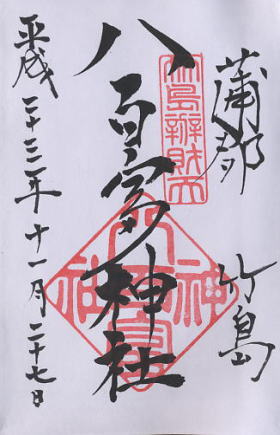 蒲郡 竹島
竹島辦財天
八百富神社
八百富神社
平成二十二年十一月二十七日